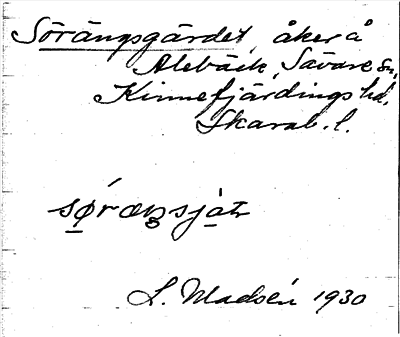 Sörängsgärdet, åker å
Alebäck, Sävare sn,
Kinnefjärdings hd,
Skarab. l.
sǿræŋsjαtr
L. Madsén 1930